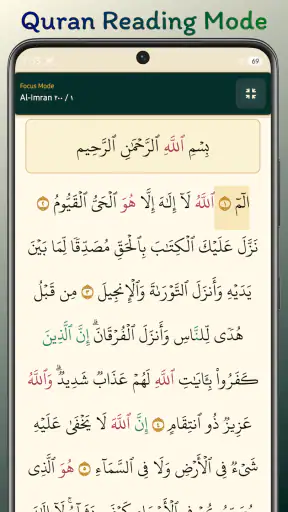 Quran Reading Mode
69
Focus Mode
Al-Imran ٢٠٠ / ١
بِسْمِ ٱللَّهِ ٱلرَّحْمَٰنِ ٱلرَّحِيمِ
الٓمٓ ١ ٱللَّهُ لَآ إِلَٰهَ إِلَّا هُوَ ٱلْحَىُّ ٱلْقَيُّومُ ٢
نَزَّلَ عَلَيْكَ ٱلْكِتَٰبَ بِٱلْحَقِّ مُصَدِّقًا لِّمَا بَيْنَ
يَدَيْهِ وَأَنزَلَ ٱلتَّوْرَىٰةَ وَٱلْإِنجِيلَ ٣ مِن قَبْلُ
هُدًى لِّلنَّاسِ وَأَنزَلَ ٱلْفُرْقَانَ ۗ إِنَّ ٱلَّذِينَ
كَفَرُوا۟ بِـَٔايَٰتِ ٱللَّهِ لَهُمْ عَذَابٌ شَدِيدٌ ۗ وَٱللَّهُ
عَزِيزٌ ذُو ٱنتِقَامٍ ٤ إِنَّ ٱللَّهَ لَا يَخْفَىٰ عَلَيْهِ
شَىْءٌ فِى ٱلْأَرْضِ وَلَا فِى ٱلسَّمَآءِ ٥ هُوَ ٱلَّذِى